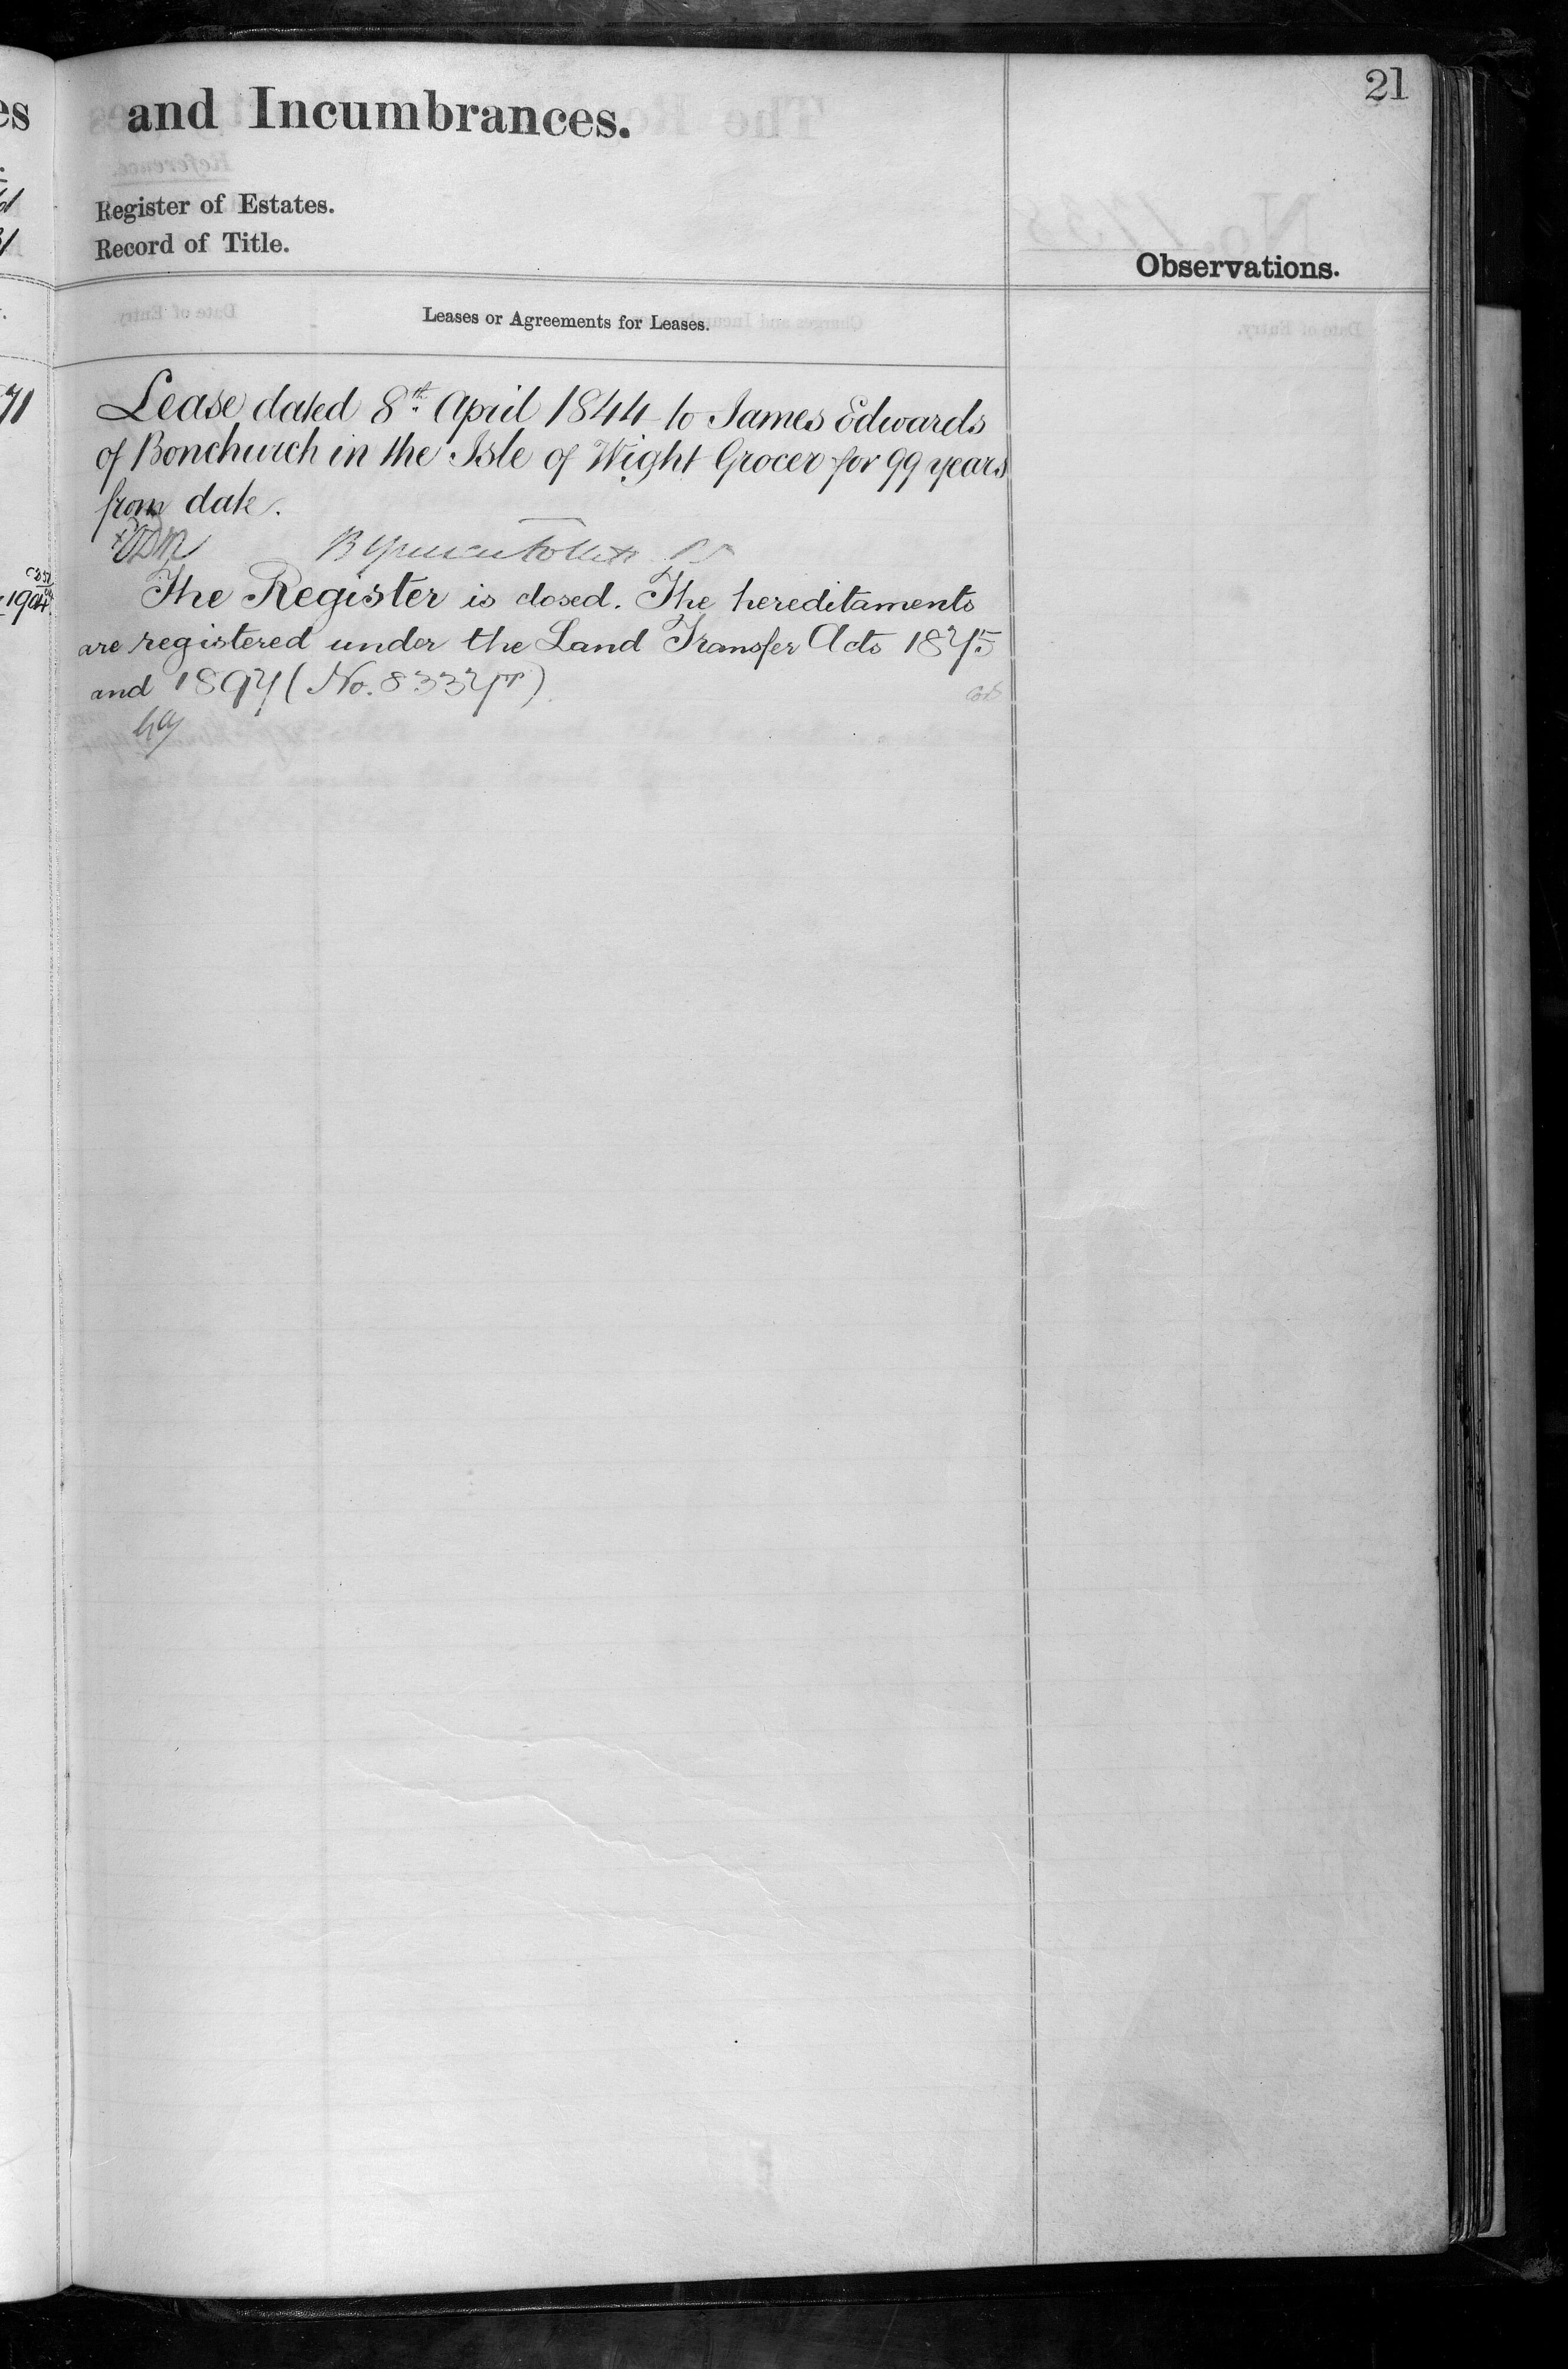 21
and Incumbrances.
Register of Estates.
Record of Title.
Observations.
Leases or Agreements for Leases.
Lease dated 8th April 1844 to James Edwards
of Bonchurch in the Isle of Wight Grocer for 99 years
from date.
The Register is closed. The hereditaments
are registered under the Land Transfer Acts 1875
and 1897 (No. 83327)